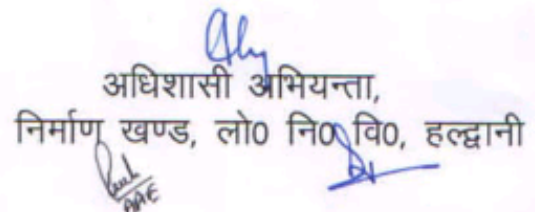 अधिशासी अभियन्ता,
निर्माण खण्ड, लो0 नि0 वि0, हल्द्वानी
AAE